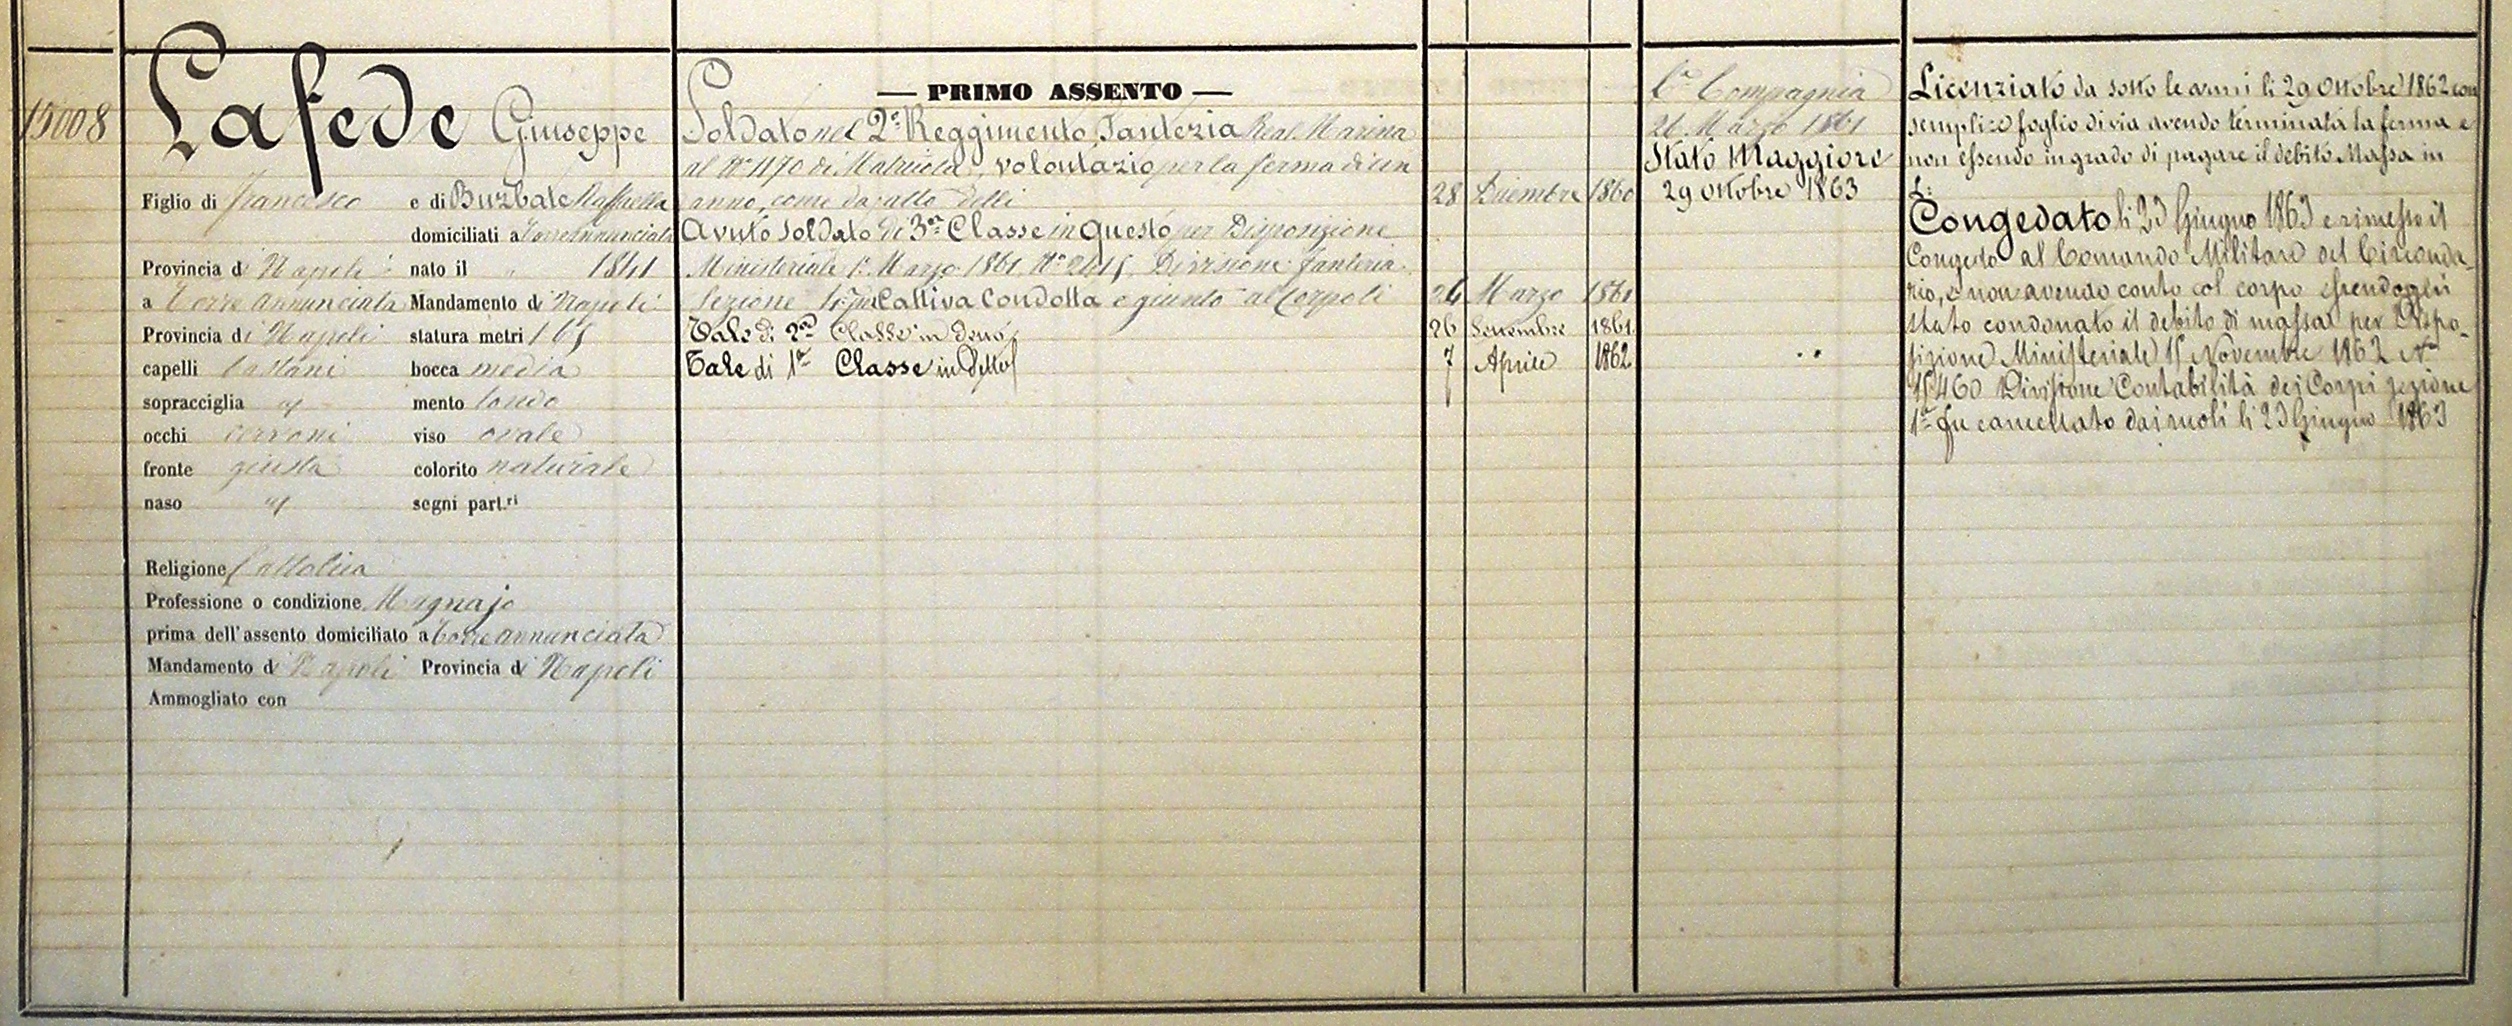 15008
Lafede Giuseppe
Figlio di Francesco e di Buzbale Raffaella
domiciliati a Torre Annunciata
Provincia di Napoli nato il " 1841
a Torre annunciata Mandamento di Napoli
Provincia di Napoli statura metri 1 65
capelli Castani bocca media
sopracciglia " mento tondo
occhi cervoni viso ovale
fronte giusta colorito naturale
naso " segni part.ri
Religione Cattolica
Professione o condizione Magnajo
prima dell'assento domiciliato a Torre annunciata
Mandamento di Napoli Provincia di Napoli
Ammogliato con
— PRIMO ASSENTO —
Soldato nel 2° Reggimento, Fanteria Real Marina
al N° 1170 di Matricola, volontario per la ferma di un
anno, come da atto delli 28 Dicembre 1860
Avuto Soldato di 3a Classe in questo per Disposizione
Ministeriale 1° Marzo 1861 N° 2415 Divisione Fanteria
Sezione Cattiva Condotta e giunto al Corpo li 26 Marzo 1861
Tale di 2a Classe in detto 26 Settembre 1861
Tale di 1a Classe in Detto 7 Aprile 1862
6a Compagnia
26 Marzo 1861
Stato Maggiore
29 Ottobre 1863
Licenziato da sotto le armi li 29 Ottobre 1862 con
semplice foglio di via avendo terminata la ferma e
non essendo in grado di pagare il debito Massa in
L:
Congedato li 23 Giugno 1863 e rimesso il
Congedo al Comando Militare del Circonda-
rio, e non avendo conto col corpo essendogli
stato condonato il debito di massa per Dispo-
sizione Ministeriale 15 Novembre 1862 N°
15460 Divisione Contabilità dei Corpi sezione
1a fu cancellato dai ruoli li 23 Giugno 1863